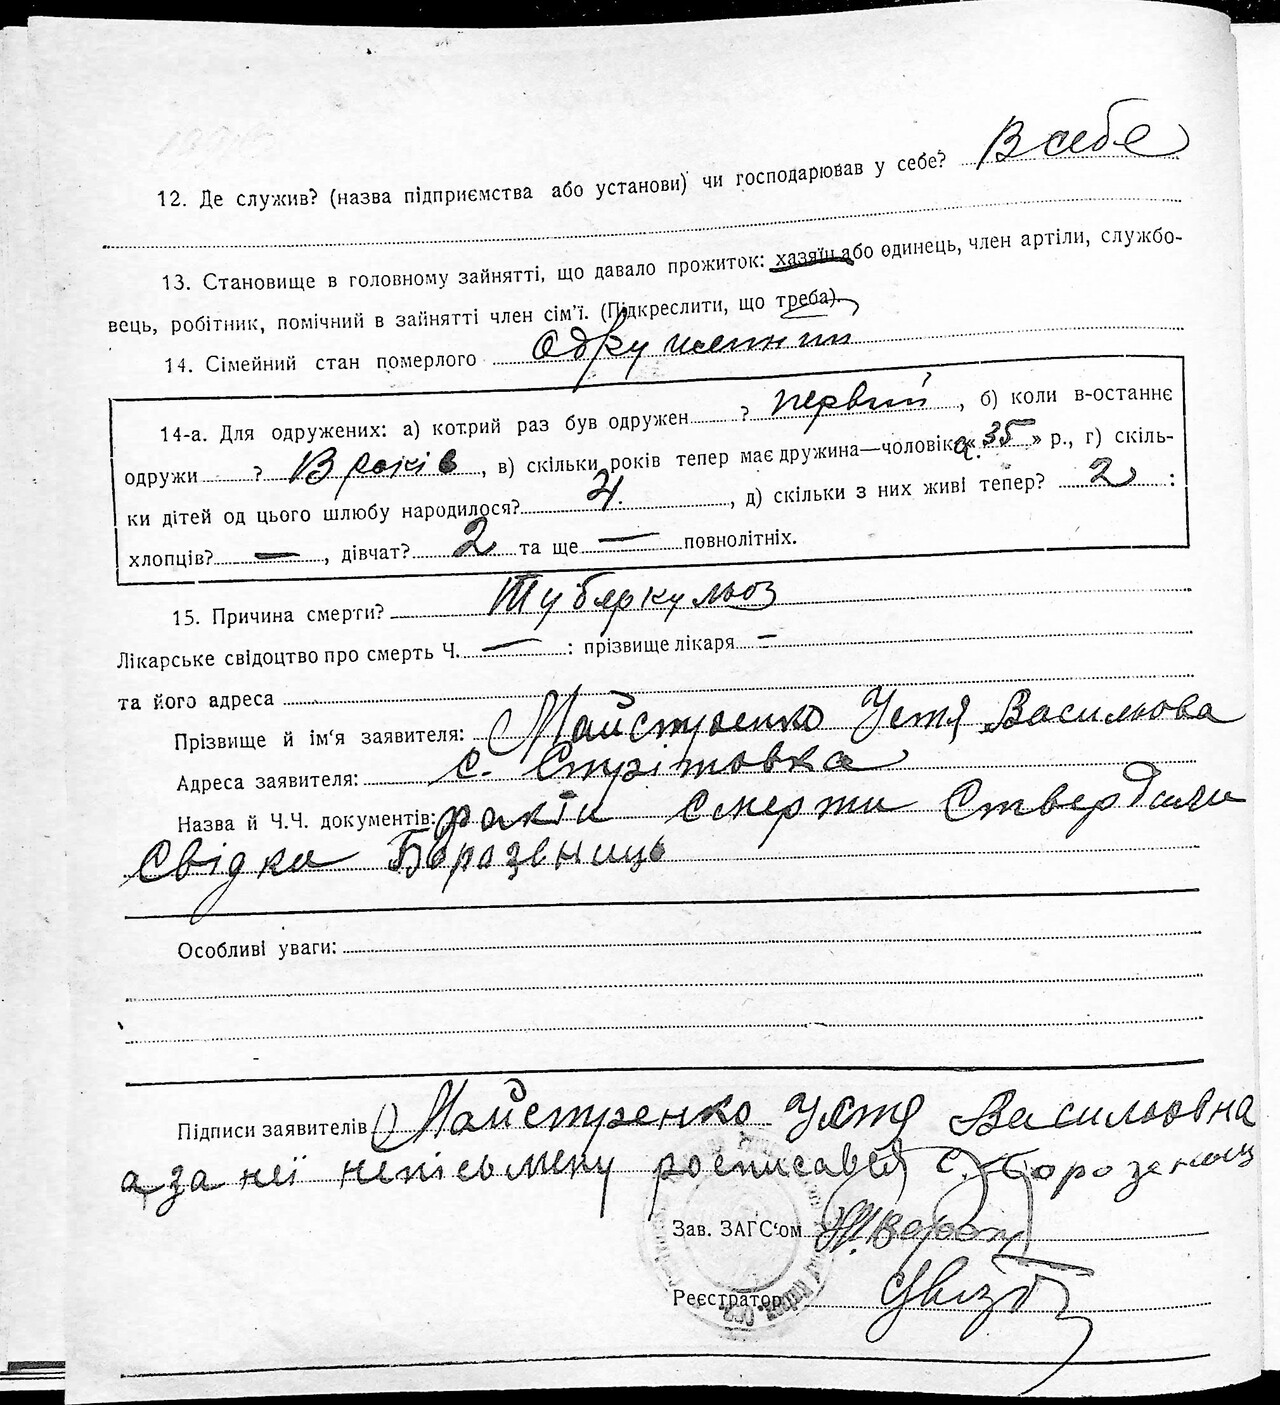 12. Де служив? (назва підприємства або установи) чи господарював у себе? В себе
13. Становище в головному зайнятті, що давало прожиток: хазяїн або одинець, член артілі, службо-
вець, робітник, помічний в зайнятті член сім'ї. (Підкреслити, що треба).
14. Сімейний стан померлого одружений
14-а. Для одружених: а) котрий раз був одружен ? первий, б) коли в-останнє
одружи ? В років, в) скільки років тепер має дружина—чоловік «35» р., г) скіль-
ки дітей од цього шлюбу народилося? 4., д) скільки з них живі тепер? 2 :
хлопців? —, дівчат? 2 та ще — повнолітніх.
15. Причина смерти? Туберкульоз
Лікарське свідоцтво про смерть Ч. — : прізвище лікаря —
та його адреса
Прізвище й ім'я заявителя: Майстренко Устя Васильова
Адреса заявителя: с. Стрітовка
Назва й Ч.Ч. документів: факти смерти ствердили
свідка Борозениць
Особливі уваги:
Підписи заявителів Майстренко Устя Васильовна
а за неї непісьмену росписався с. Борозениц
Зав. ЗАГС'ом
Реєстратор